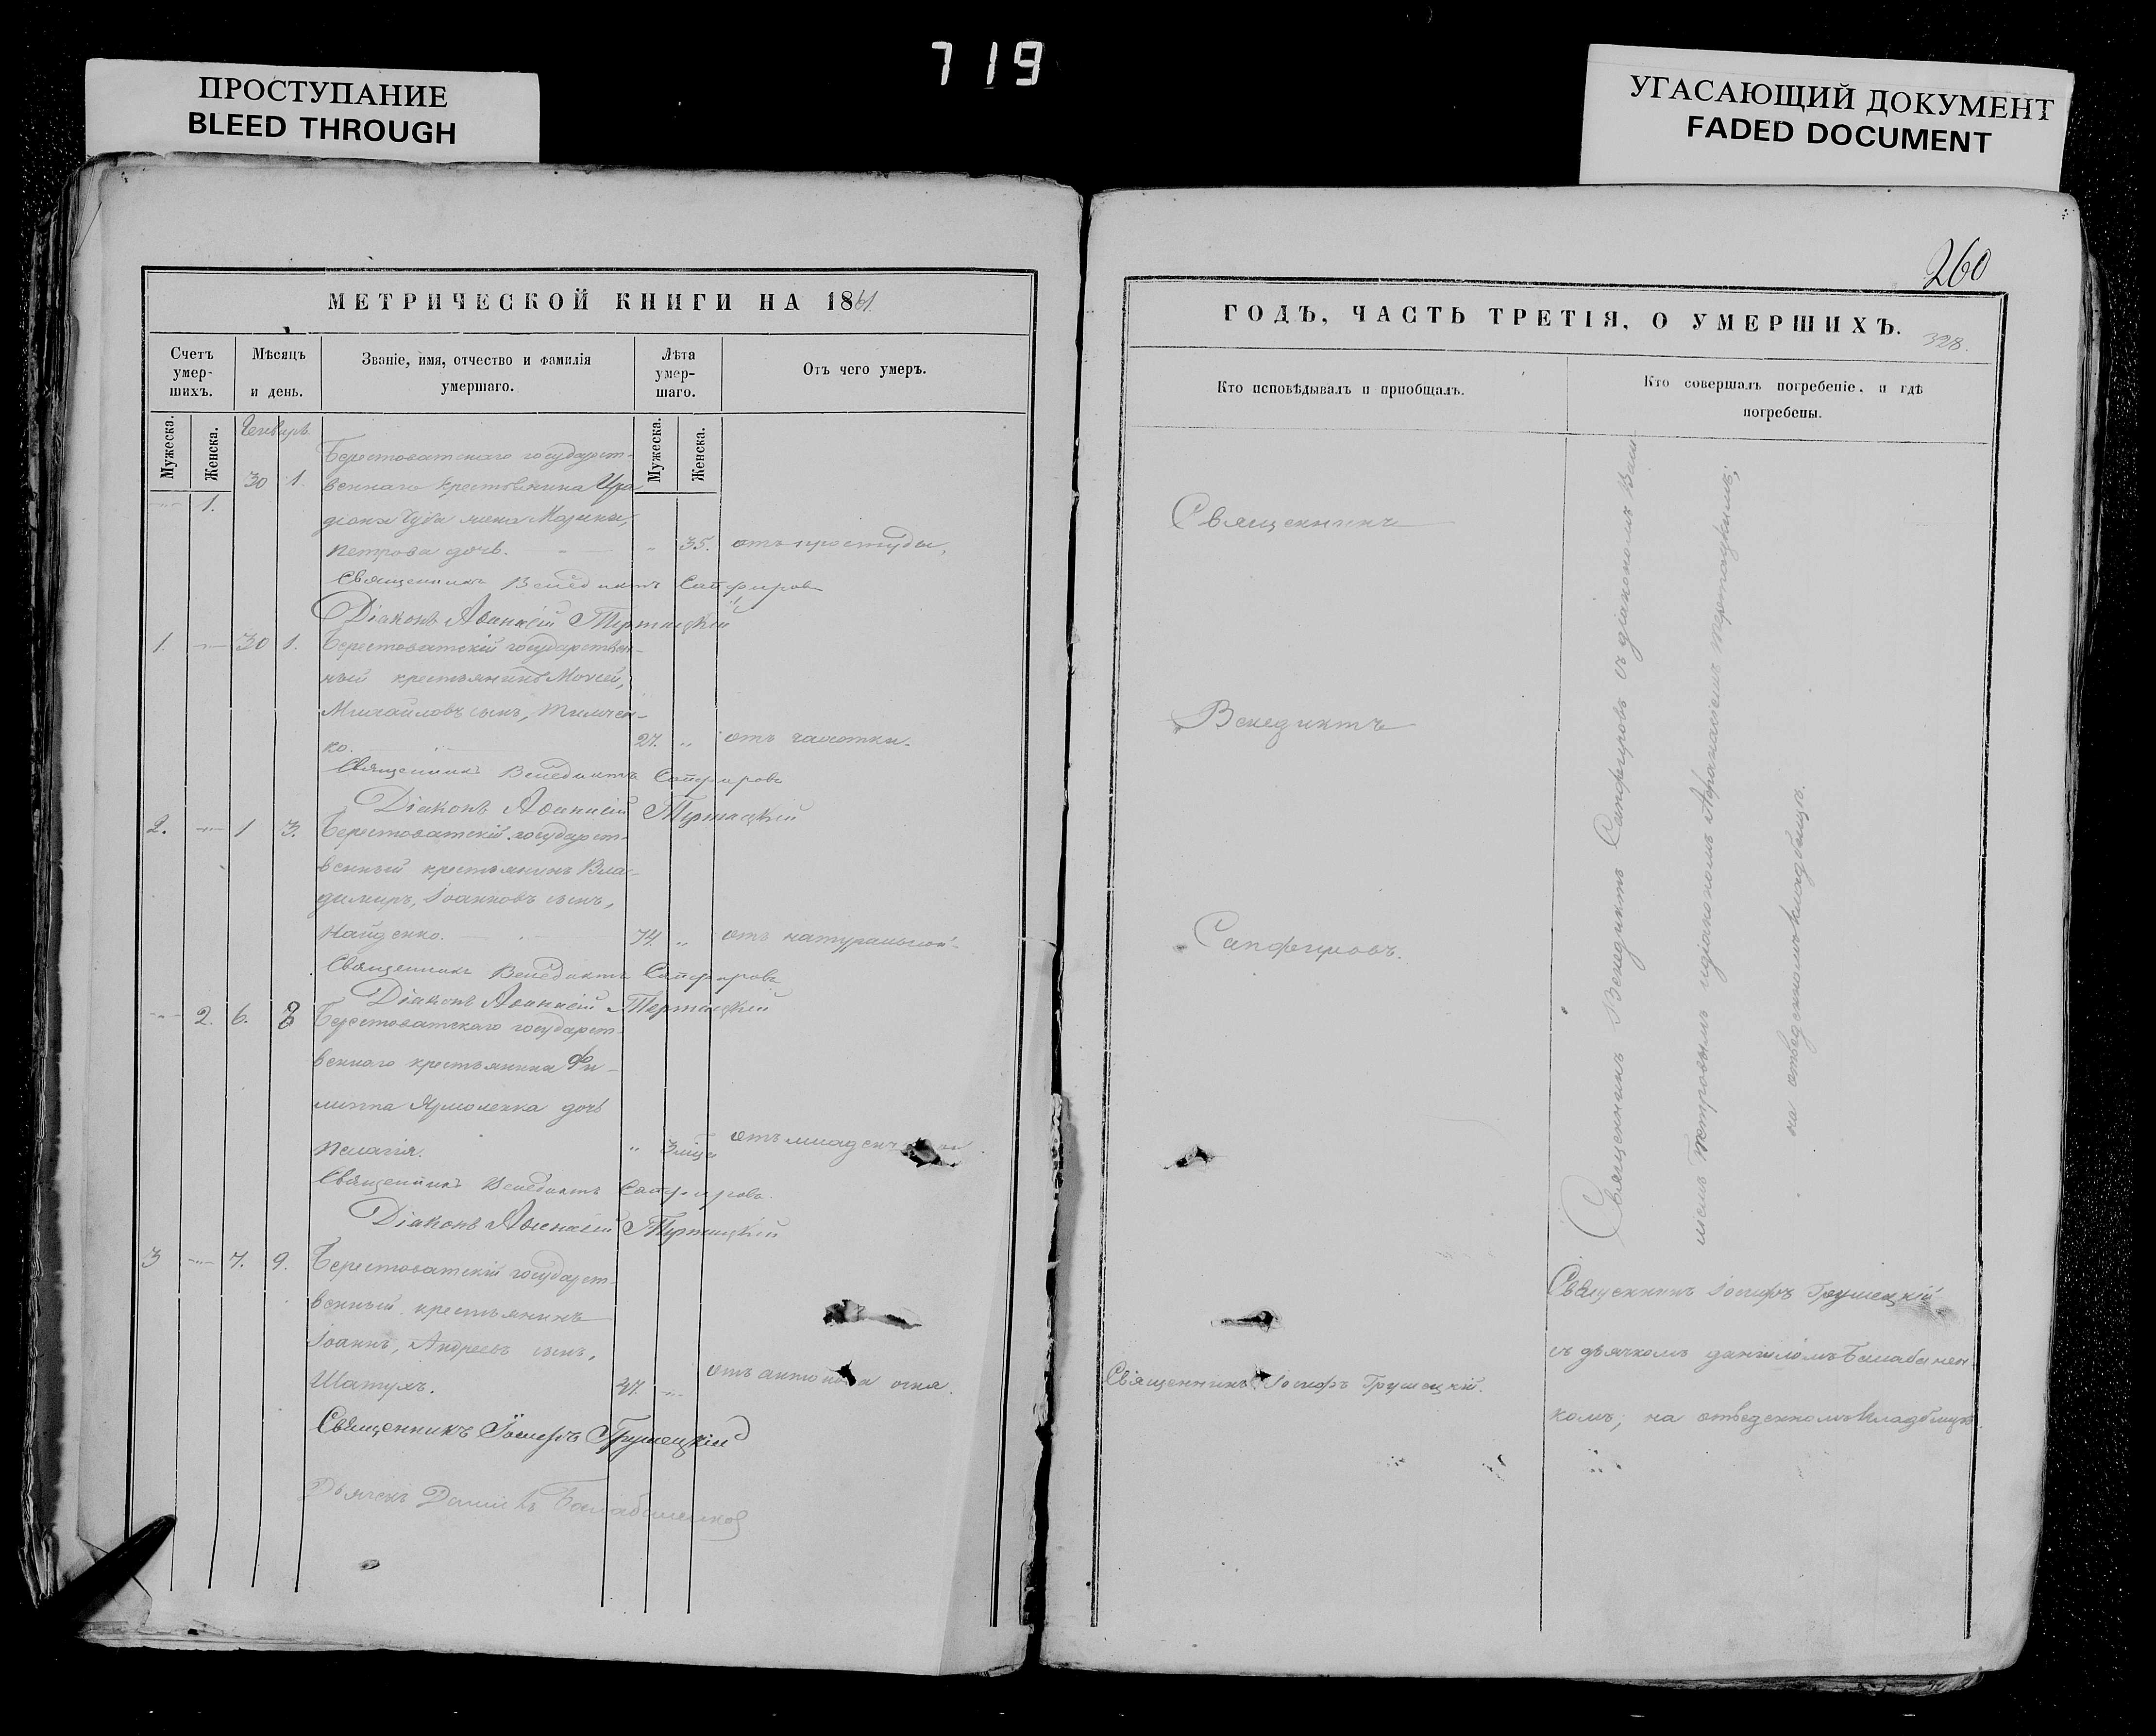 719
ПРОСТУПАНИЕ
BLEED THROUGH
УГАСАЮЩИЙ ДОКУМЕНТ
FADED DOCUMENT
МЕТРИЧЕСКОЙ КНИГИ НА 1861.
Счетъ умер- шихъ.
Мѣсяцъ и день.
Званіе, имя, отчество и фамилія умершаго.
Лѣта умер- шаго.
Отъ чего умеръ.
Мужеска.
Женска.
Мужеска.
Женска.
Генварь.
Берестоватскаго государст-
30 1. веннаго крестьянина Ира
1.
діона Чуба жена Марина,
Петрова дочь. 35. отъ простуды,
Священникъ Венедиктъ Сапфировъ
Діаконъ Аѳанасій Терпицкій
1. 30 1. Берестоватскій государствен-
ный крестьянинъ Моисей,
Михайловъ сынъ, Тимчен-
ко. 27. „ отъ чахотки.
Священникъ Венедиктъ Сапфировъ
Діаконъ Аѳанасій
2. 1 3. Берестоватскій государст-
венный крестьянинъ Вла-
димиръ, Іоанновъ сынъ,
Найденко. 74. „ отъ натуральной
Священникъ Венедиктъ Сапфировъ
Діаконъ Аѳанасій
2. 6. 8 Берестоватскаго государст-
веннаго крестьянина Фи-
липпа Ярмоленка дочь
Пелагія. „ 3 отъ
Священникъ Венедиктъ Сапфировъ
Діаконъ Аѳанасій
3 7. 9. Берестоватскій государст-
венный крестьянинъ
Іоаннъ, Андреевъ сынъ,
Шатухъ. 47. отъ антонова огня.
Священникъ Іосифъ Грушецкій
Дьячекъ Даніилъ
260
ГОДЪ, ЧАСТЬ ТРЕТІЯ, О УМЕРШИХЪ.
328.
Кто исповѣдывалъ и пріобщалъ.
Кто совершалъ погребеніе, и гдѣ погребены.
Священникъ
Венедиктъ
Сапфировъ.
Священникъ Венедиктъ Сапфировъ съ діакономъ
Петровымъ и діакономъ Афанасіемъ
на отведенномъ кладбищѣ.
Священникъ Іосифъ Грушецкій.
Священникъ Іосифъ Грушецкій
съ дьячкомъ Даніиломъ Балабанен-
комъ; на отведенномъ кладбищѣ